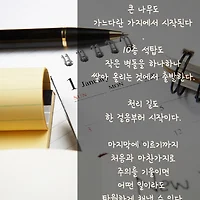 큰 나무도
가느다란 가지에서 시작된다
.
10층 석탑도
작은 벽돌을 하나하나
쌓아 올리는 것에서 출발한다
.
천리 길도
한 걸음부터 시작이다.
마지막에 이르기까지
처음과 마찬가지로
주의를 기울이면
어떤 일이라도
탁월하게 해낼 수 있다
1 Janu
MON